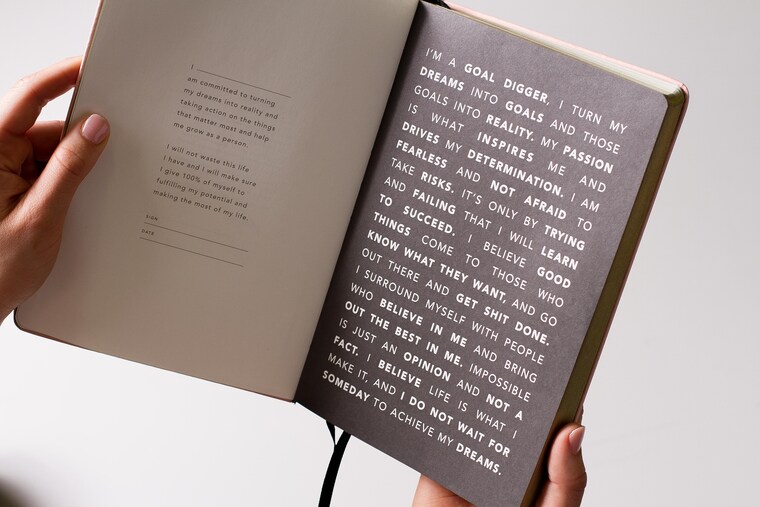 I
am committed to turning
my dreams into reality and
taking action on the things
that matter most and help
me grow as a person.
I will not waste this life
I have and I will make sure
I give 100% of myself to
fulfilling my potential and
making the most of my life.
SIGN
DATE
I'M A GOAL DIGGER, I TURN MY
DREAMS INTO GOALS AND THOSE
GOALS INTO REALITY. MY PASSION
IS WHAT INSPIRES ME AND
DRIVES MY DETERMINATION. I AM
FEARLESS AND NOT AFRAID TO
TAKE RISKS. IT'S ONLY BY TRYING
AND FAILING THAT I WILL LEARN
TO SUCCEED. I BELIEVE GOOD
THINGS COME TO THOSE WHO
KNOW WHAT THEY WANT, AND GO
OUT THERE AND GET SHIT DONE.
I SURROUND MYSELF WITH PEOPLE
WHO BELIEVE IN ME AND BRING
OUT THE BEST IN ME. IMPOSSIBLE
IS JUST AN OPINION AND NOT A
FACT. I BELIEVE LIFE IS WHAT I
MAKE IT, AND I DO NOT WAIT FOR
SOMEDAY TO ACHIEVE MY DREAMS.